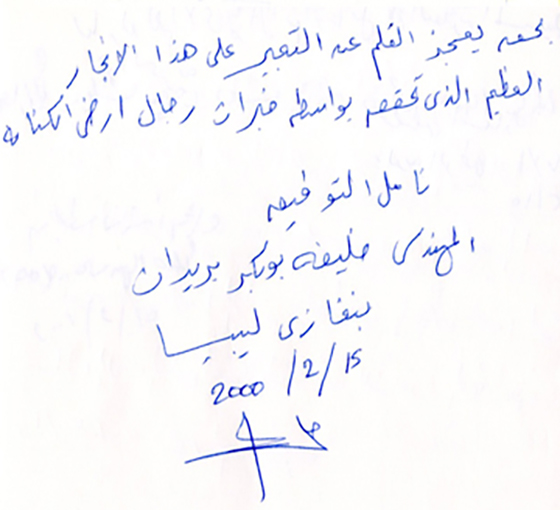 بحق يعجز القلم عن التعبير على هذا الانجاز
العظيم الذى تحقق بواسطه خبرات رجال ارض الكنانه
نامل التوفيق
المهندس خليفه بوبكر بريدان
بنغازى ليبيا
15/2/2000